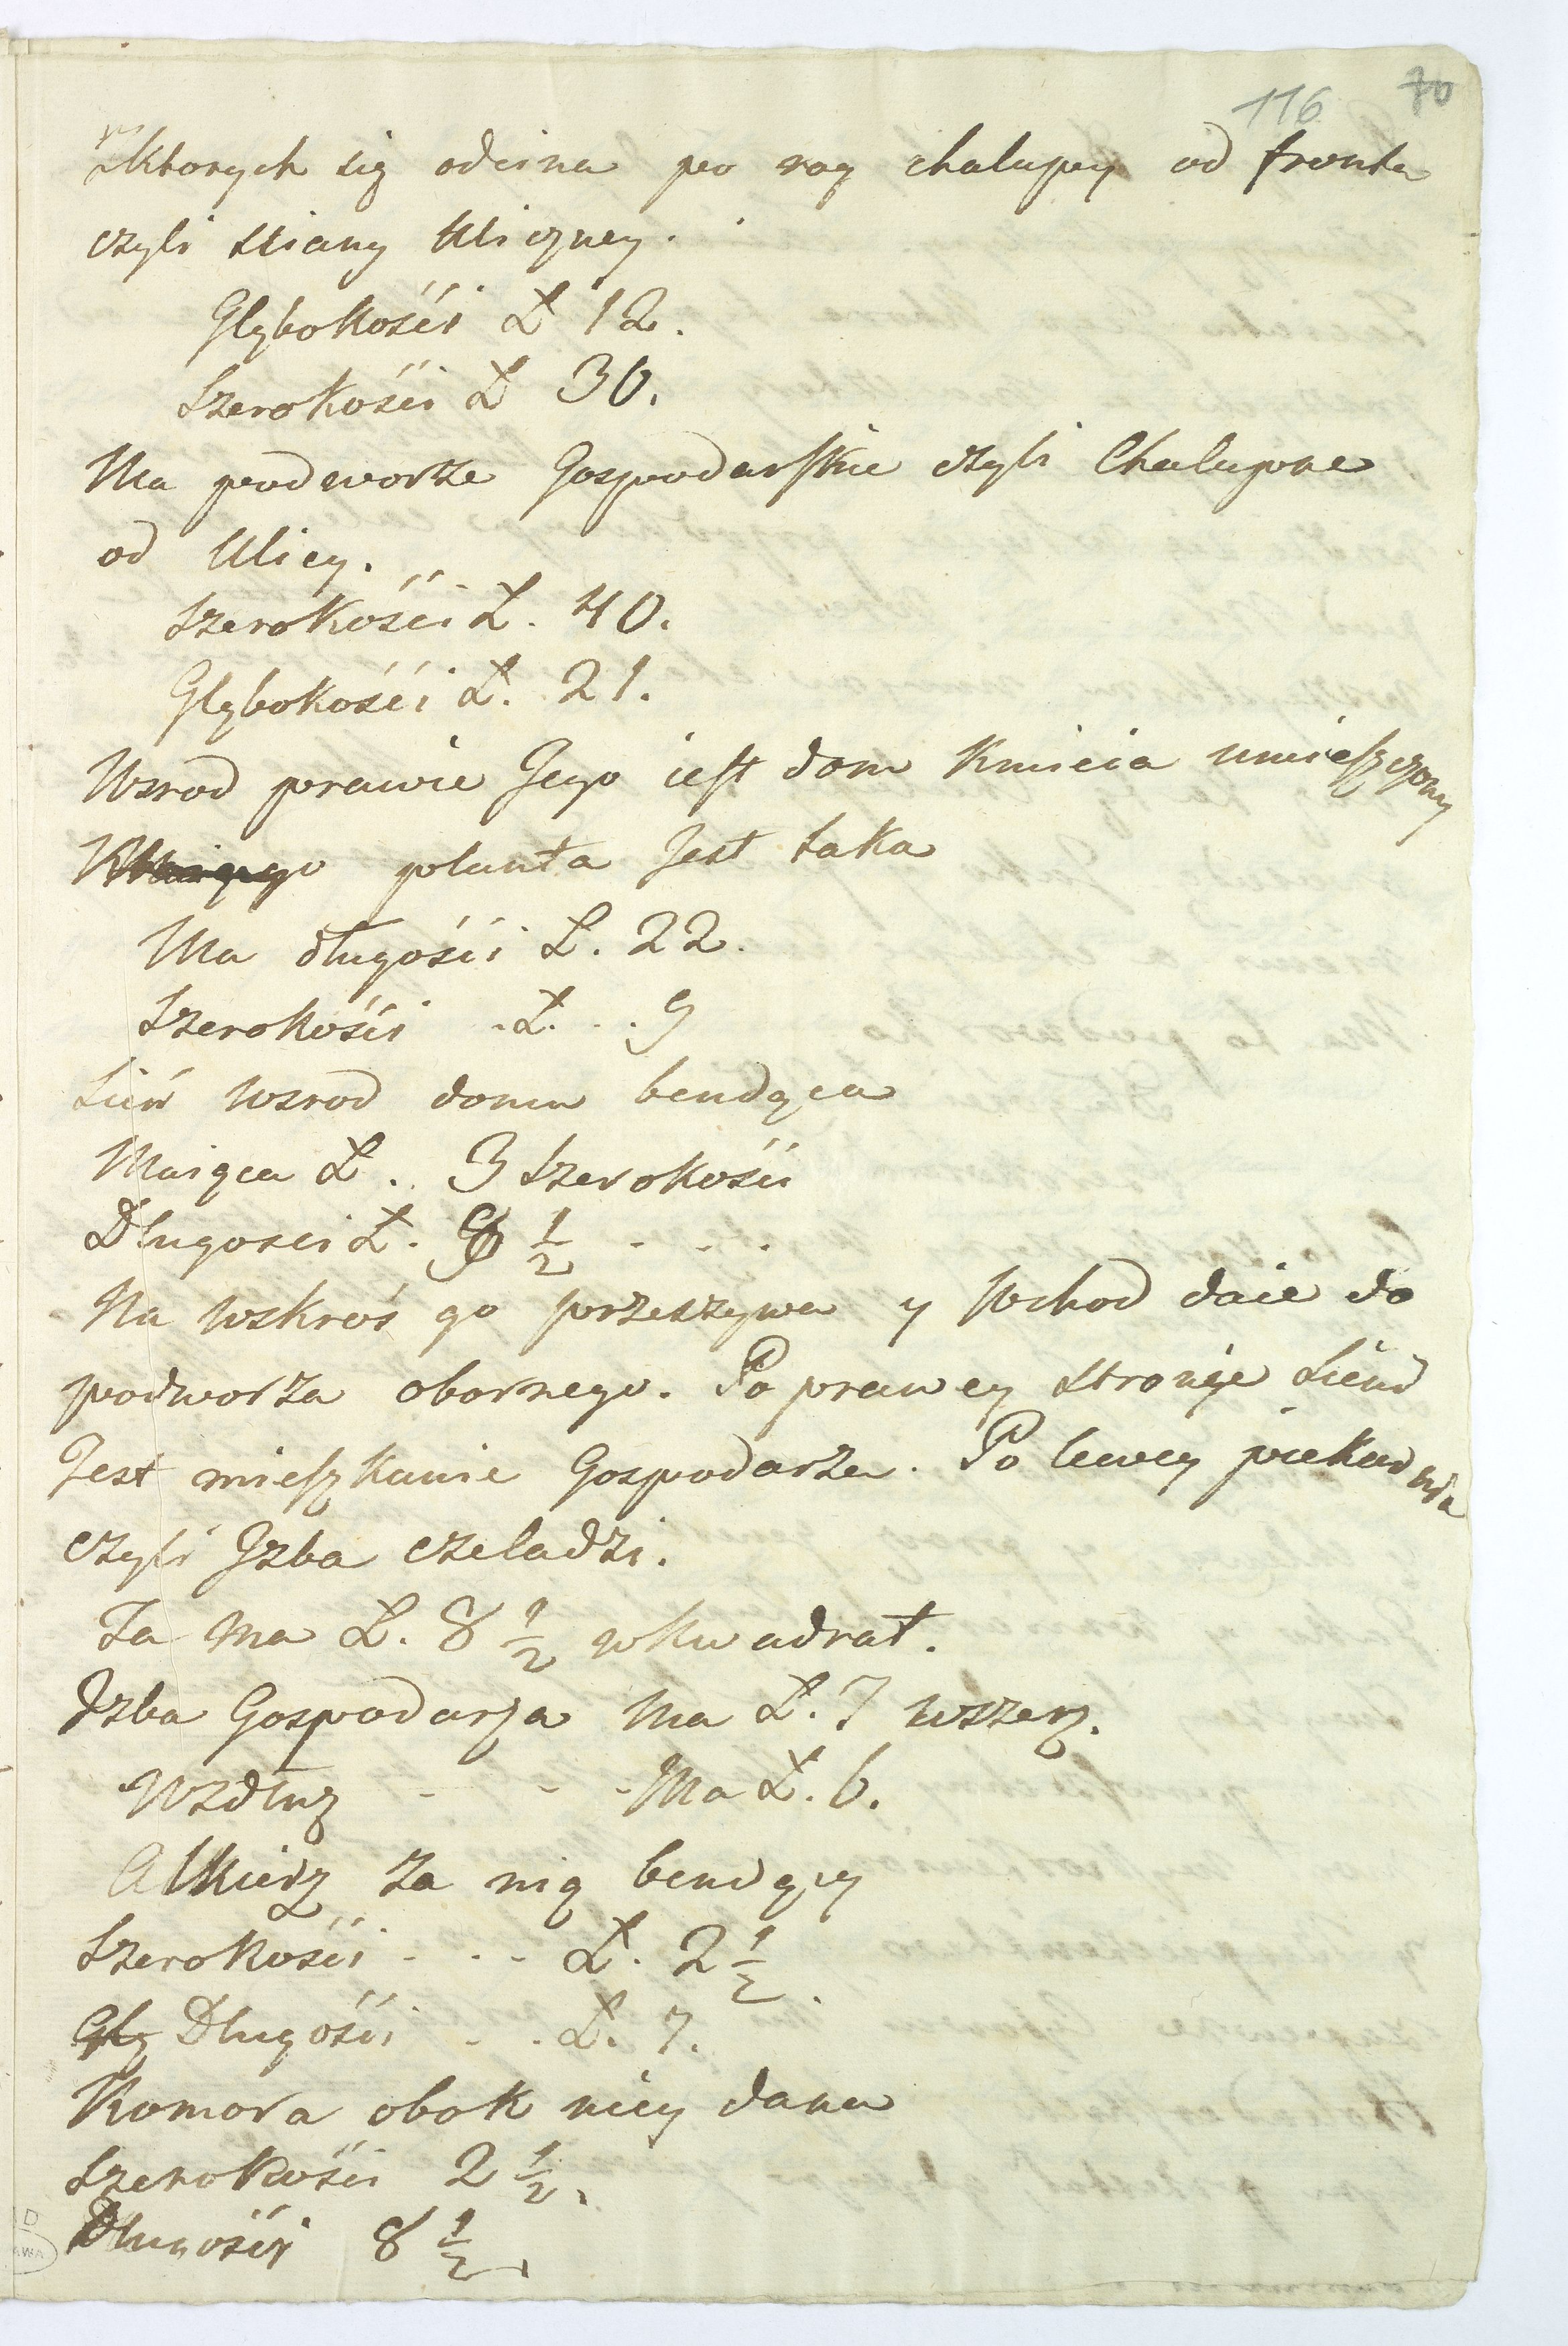 116 70
z Ktorych się odcina po rog chalupy od frontu
czyli sciany Uliczney.
Głębokośći Ł 12.
Szerokośći Ł 30.
Ma podworze Gospodarskie czyli Chalupne
od Ulicy.
Szerokośći Ł. 40.
Głębokośći Ł. 21.
Wsrod prawie Jego iest dom Kmiecia umieszczony
planta Jest taka
Ma długośći Ł. 22.
Szerokośći . Ł. . . 9
Sień wsrod domu bendąca
Maiąca Ł. . 3 Szerokośći
Długosci Ł. 9 1/2 - - .
Na wskroś go przeszywa y wchod daie do
podworza obornego. Po prawey stronie Sieni
Jest mieszkanie Gospodarza. Po lewey piekarnia
czyli Jzba czeladzi.
Ta ma Ł. 8 1/2 w kwadrat.
Jzba Gospodarza Ma Ł. 7 wszerz.
Wzdłuz - - - Ma Ł. 6.
Alkierz za nią bendący
Szerokośći - - - Ł. 2 1/2.
Głę Długośći . . Ł. 7.
Komora obok niey dana
Szerokośći 2 1/2.
Długośći 8 1/2.